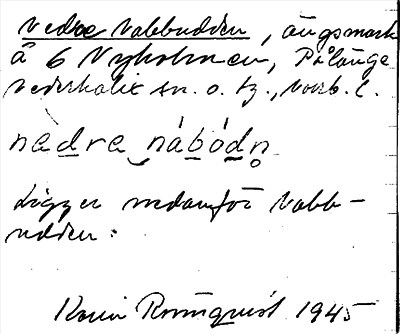 nedre Vabbudden, ängsmark
å 6 Nyholmen, Pålänge
Nederkalix sn. o. tg., Norrb. l.
nèdre nábódn̥
Ligger nedanför Vabb-
udden:
Karin Rönnquist 1945